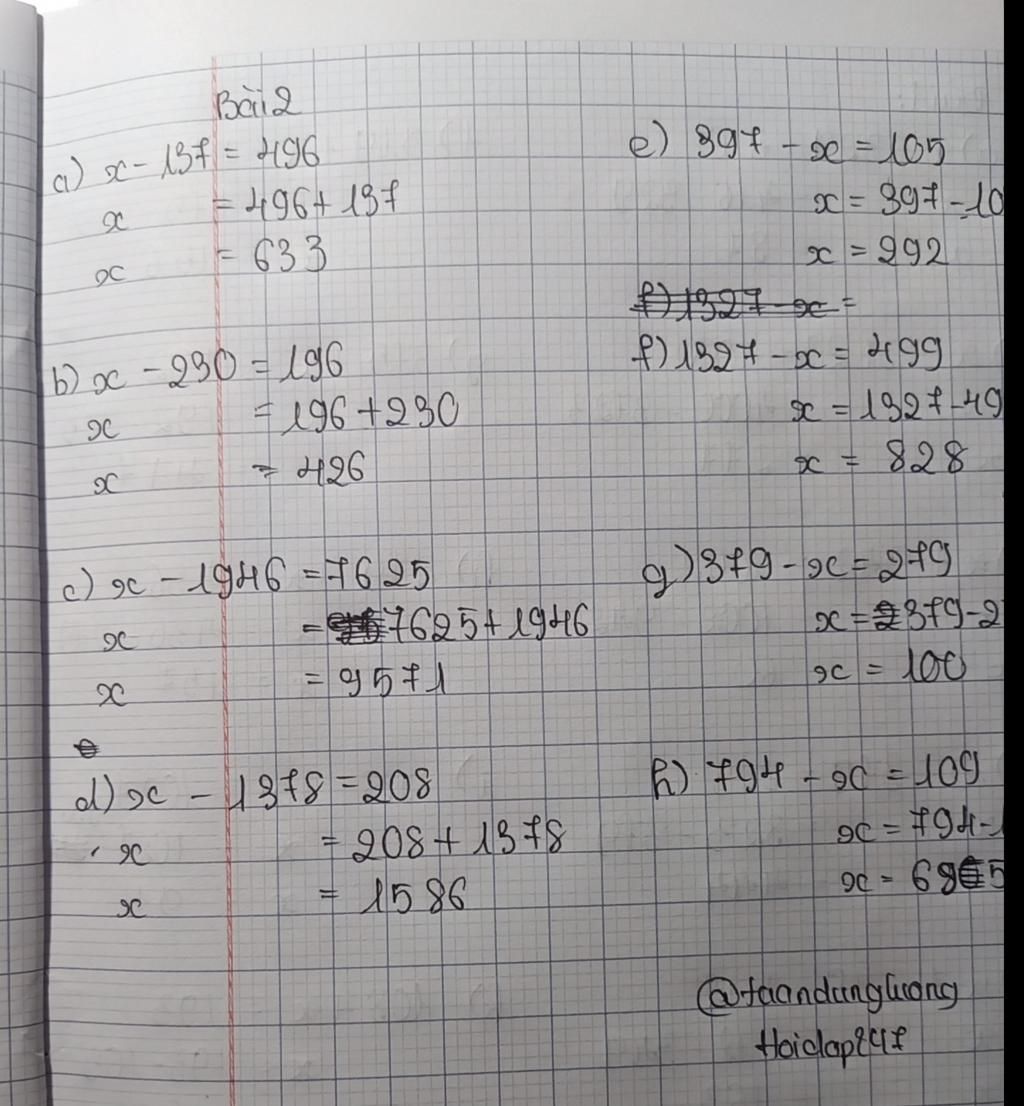 Bài 2
a) x - 137 = 496
x = 496 + 137
x = 633
b) x - 230 = 196
x = 196 + 230
x = 426
c) x - 1946 = 7625
x = 7625 + 1946
x = 9571
d) x - 1378 = 208
x = 208 + 1378
x = 1586
e) 397 - x = 105
x = 397 - 10
x = 292
f) 1327 - x =
f) 1327 - x = 499
x = 1327 - 49
x = 828
g) 379 - x = 279
x = 379 - 2
x = 100
h) 794 - x = 109
x = 794 - 1
x = 685
@taandungluong
Hoidap247